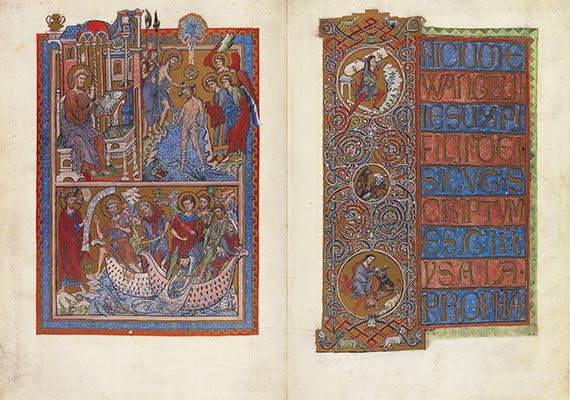 NICIUM E
WANGELII
IESU XPI
FILII DEI
SICVT S
CRIPTUM
EST IN
YSAIA
PROPHA